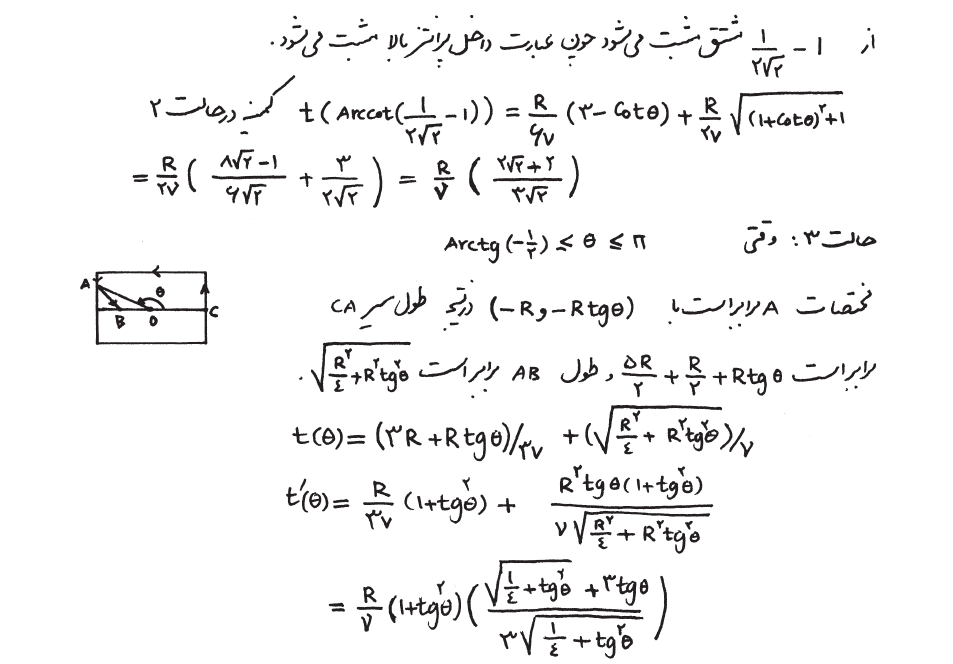 از ۱ − ۱/۲√۲ مشتق مثبت می‌شود چون عبارت داخل پرانتز بالا مثبت می‌شود.
کمینه در حالت ۲ t(Arccot(۱/۲√۲ − ۱)) = R/۶v (۳ − Cotθ) + R/۲v √((۱+Cotθ)^۲+۱)
= R/۲v (۸√۲−۱/۶√۲ + ۳/۲√۲) = R/v (۲√۲+۲/۳√۲)
حالت ۳: وقتی Arctg(−۱/۲) ≤ θ ≤ π
A θ B O C
مختصات A برابر است با (−R و −Rtgθ) در نتیجه طول مسیر CA
برابر است ۵R/۲ + R/۲ + Rtgθ و طول AB برابر است √(R^۲/٤ + R^۲tg^۲θ).
t(θ) = (۳R + Rtgθ)/۳v + (√(R^۲/٤ + R^۲tg^۲θ))/v
t′(θ) = R/۳v (۱+tg^۲θ) + R^۲tgθ(۱+tg^۲θ)/v√(R^۲/٤ + R^۲tg^۲θ)
= R/v (۱+tg^۲θ)(√(۱/٤ + tg^۲θ) + ۳tgθ/۳√(۱/٤ + tg^۲θ))